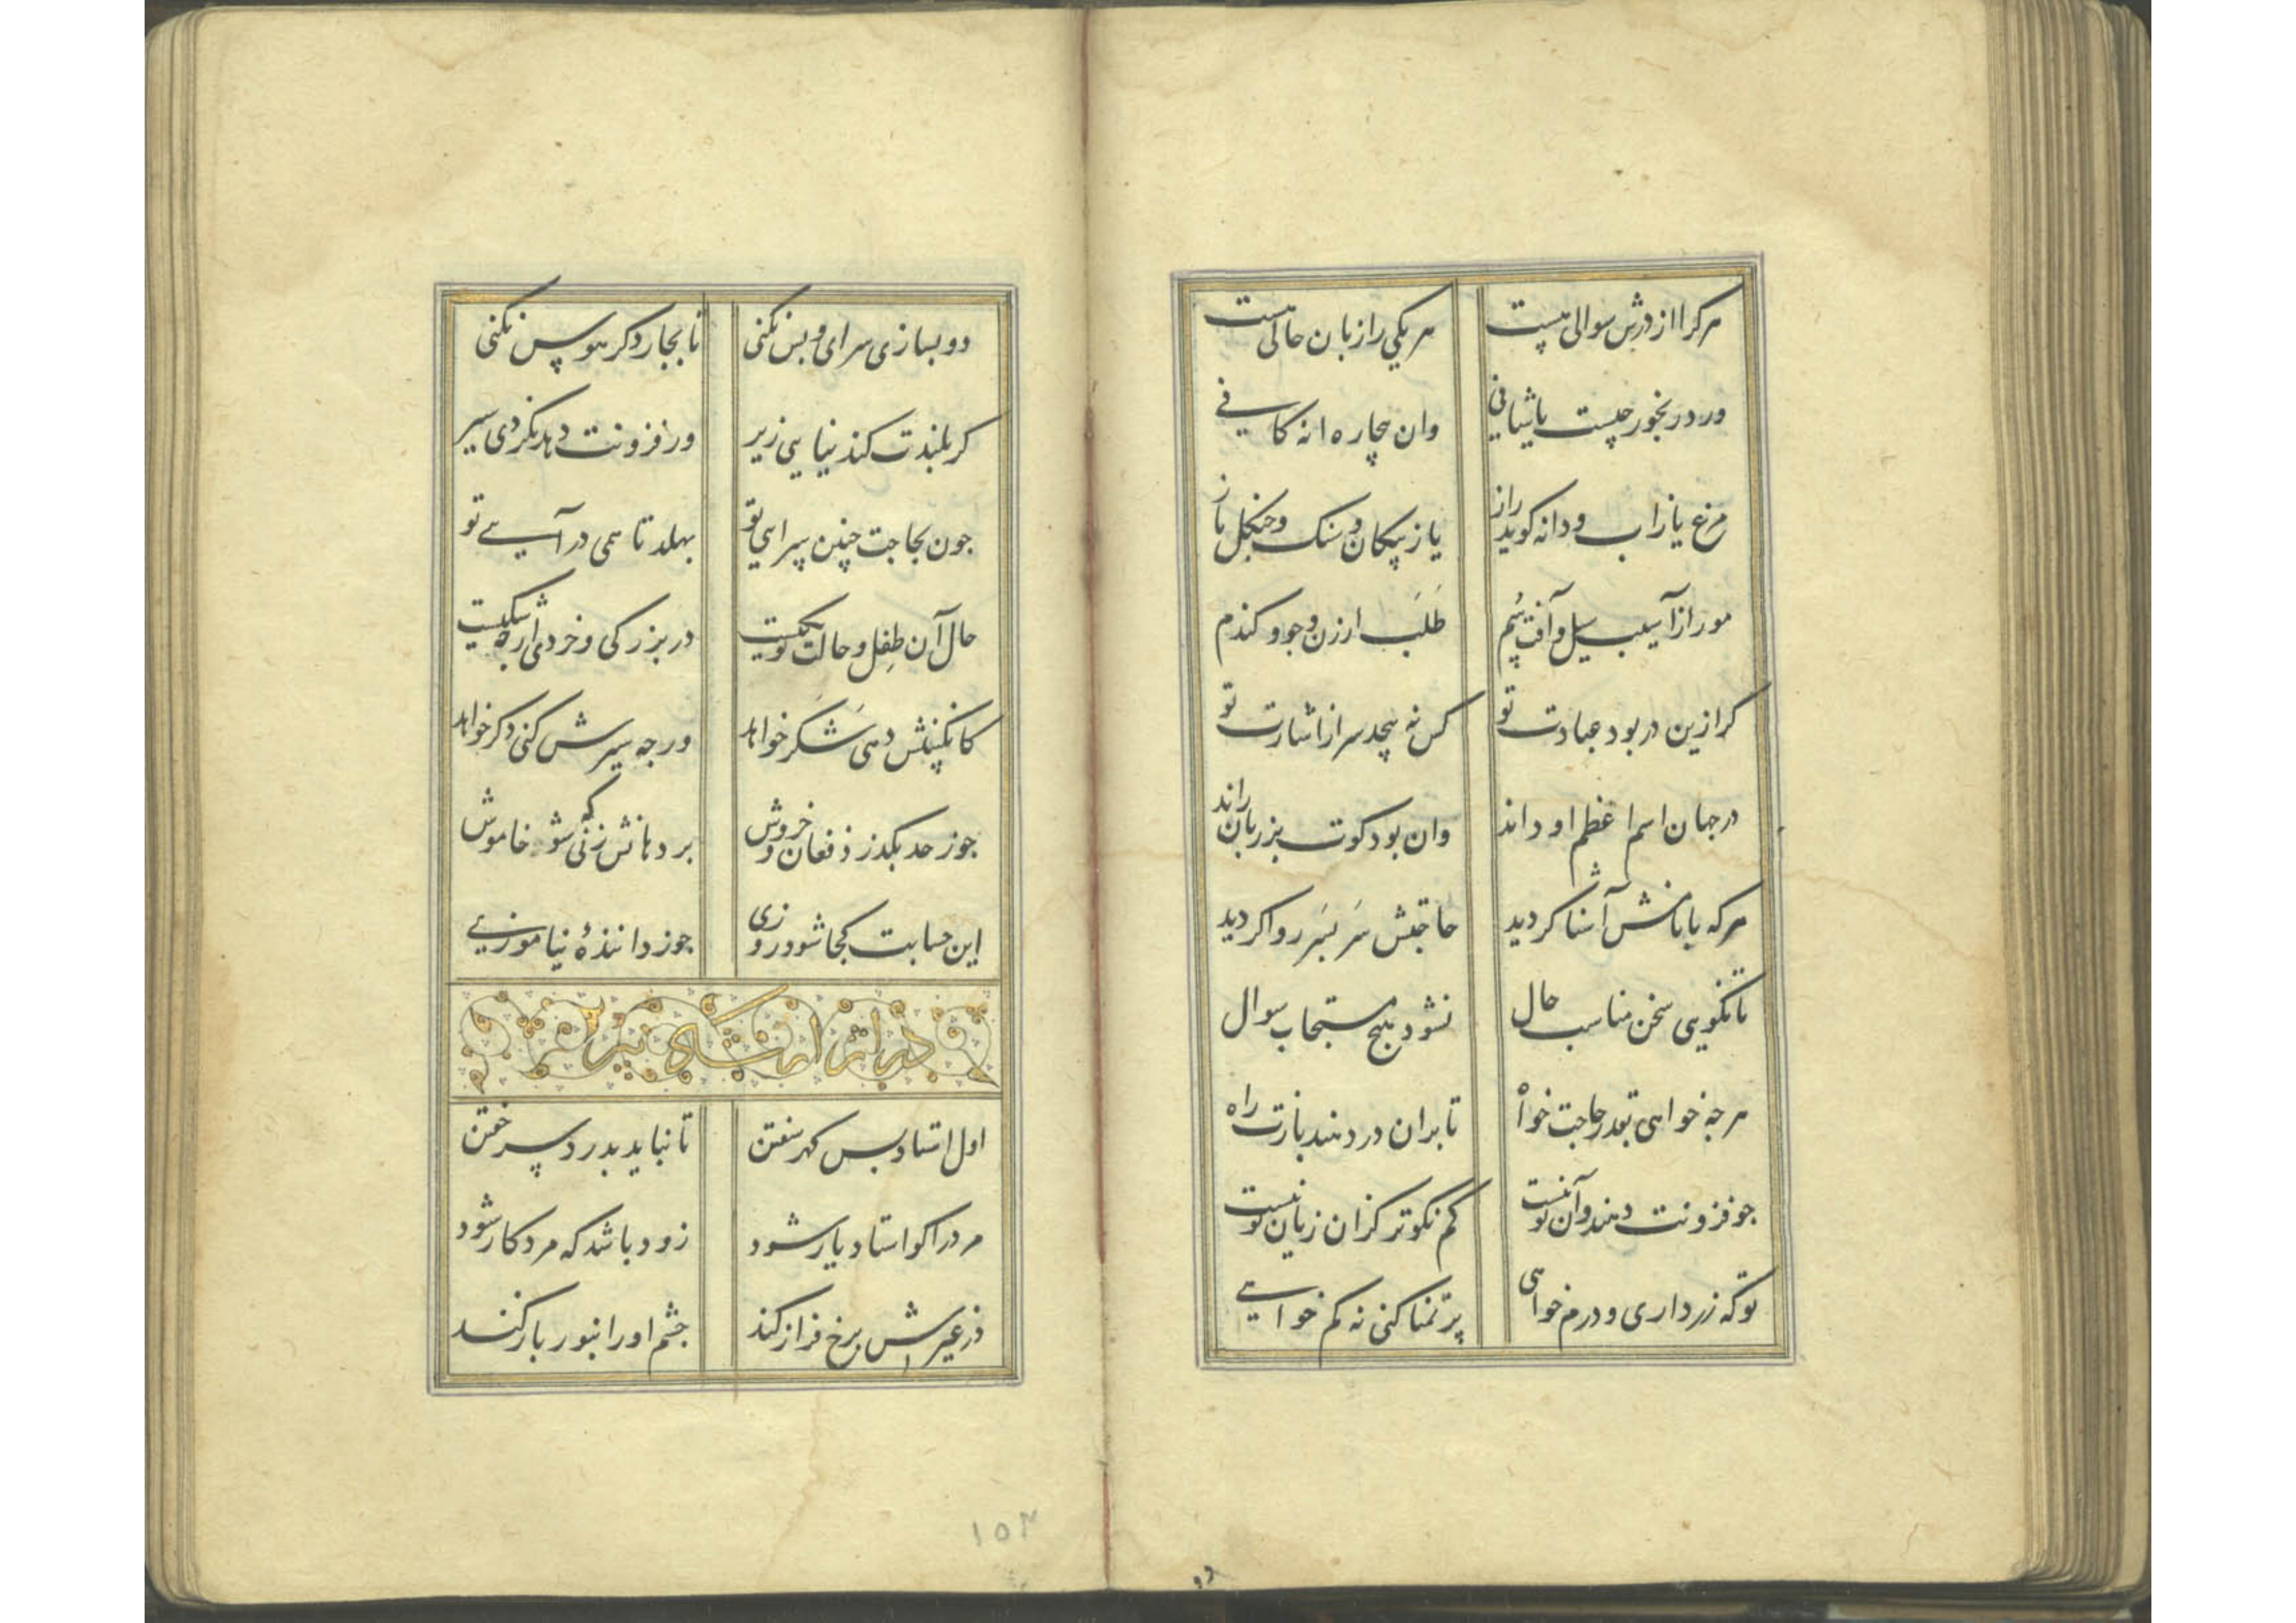 هرکرا از درش سوالی هست
هر یکی را زبان حالی هست
ور در بخور چیست یا شافی
وان بیچاره انه کافی
مرغ یا زاب و دانه کوید راز
یا ز پیکان و سنک و چنکل باز
مور از آسیب سیل و آفت سم
طلب ارزن و جو و کندم
کر ازین در بود عبادت تو
کس نه پیچد سر از اشارت تو
در جهان اسم اعظم او داند
وان بود کوت بر زبان راند
هر که با نامش آشنا کردید
حاجتش سر بسر روا کردید
تا نکویی سخن مناسب حال
نشود هیچ مستجاب سوال
هر جه خواهی بقدر حاجت خواه
تا بران در دهند بازت راه
جو فزونت دهند و آن تو نیست
کم نکوتر کزان زیان تو نیست
تو که زر داری و درم خواهی
پر تمنا کنی نه کم خواهی
دو بسازی سرای و بس نکنی
تا بجار دکر هوس نکنی
کر بلندت کند نیایی زیر
ور فزونت دهد نکردی سیر
جون بحاجت جنین سرایی تو
بهلد تا همی در آیی تو
حال آن طفل و حالت تو یکیست
در بزرکی و خردی ارجه شکیست
کانکبینش دهی شکر خواهد
ورجه سیرش کنی دکر خواهد
جوز حد بکذرد فغان و خروش
بر دهانش زنی که شو خاموش
این حسابت کجا شود روزی
جوز داننده نیاموزی
در باز ارشاد پیر
اول استاد بس کهر سفتن
تا نباید بدرد سر خفتن
مرد را کو استاد یار شود
زود باشد که مرد کار شود
در غیرش برخ فراز کند
جشم او را بنور باز کند
۱۵۴